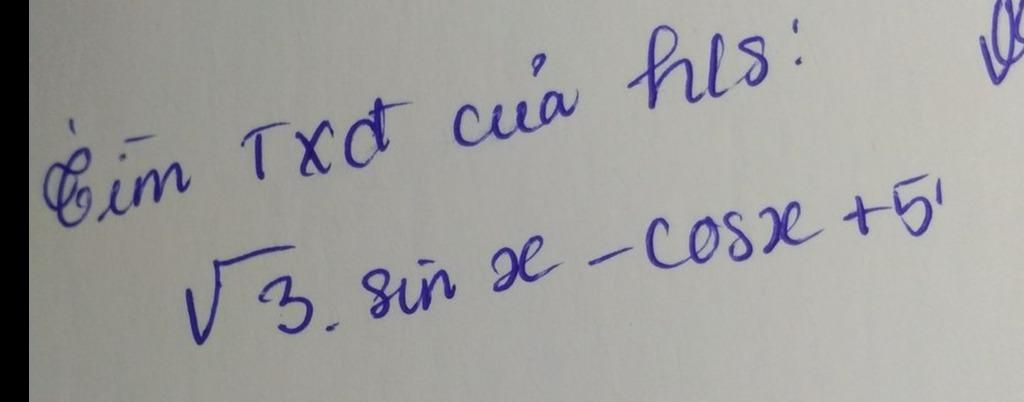 Tìm Txđ của hls:
√3. sin x - cosx + 5